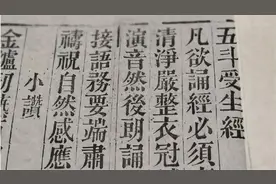 五斗受生經
凡欲誦經必須
清淨嚴整衣冠
演音然後朗誦
接語務要端肅
禱祝自然感應
小讚
金爐初爇